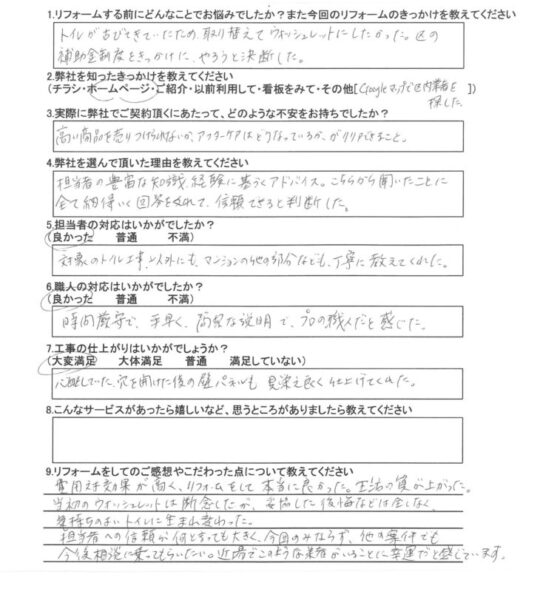 1.リフォームする前にどんなことでお悩みでしたか？また今回のリフォームのきっかけを教えてください
トイレが古びてきていたため、取り替えてウォッシュレットにしたかった。区の
補助金制度をきっかけに、やろうと決断した。
2.弊社を知ったきっかけを教えてください
(チラシ・ホームページ・ご紹介・以前利用して・看板をみて・その他[Googleマップで区内業者を
探した])
3.実際に弊社でご契約頂くにあたって、どのような不安をお持ちでしたか？
高い商品を売りつけられないか、アフターケアはどうなっているか、がクリアできること。
4.弊社を選んで頂いた理由を教えてください
担当者の豊富な知識、経験に基づくアドバイス。こちらから聞いたことに
全て納得いく回答をくれて、信頼できると判断した。
5.担当者の対応はいかがでしたか？
(良かった 普通 不満)
対象のトイレ工事以外にも、マンションの他の部分なども、丁寧に教えてくれた。
6.職人の対応はいかがでしたか？
(良かった 普通 不満)
時間厳守で、手早く、簡潔な説明で、プロの職人だと感じた。
7.工事の仕上がりはいかがでしょうか？
(大変満足 大体満足 普通 満足していない)
心配していた、穴を開けた後の壁パネルも 見栄え良く仕上げてくれた。
8.こんなサービスがあったら嬉しいなど、思うところがありましたら教えてください
9.リフォームをしてのご感想やこだわった点について教えてください
費用対効果が高く、リフォームをして本当に良かった。生活の質が上がった。
当初のウォッシュレットは断念したが、妥協した後悔などは全くなく、
気持ちのよいトイレに生まれ変わった。
担当者への信頼が何と言っても大きく、今回のみならず、他の案件でも
今後相談に乗ってもらいたい。近場でこのような業者がいることに幸運だと感じています。